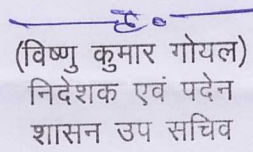 (विष्णु कुमार गोयल)
निदेशक एवं पदेन
शासन उप सचिव